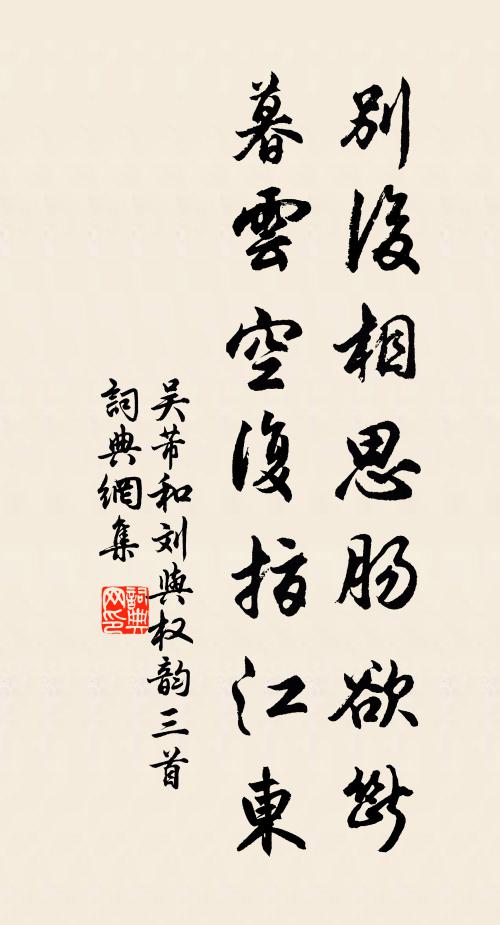 別後相思腸欲斷
暮雲空復指江東
吴芾和刘與权韵三首
詞典網集
詞典网印